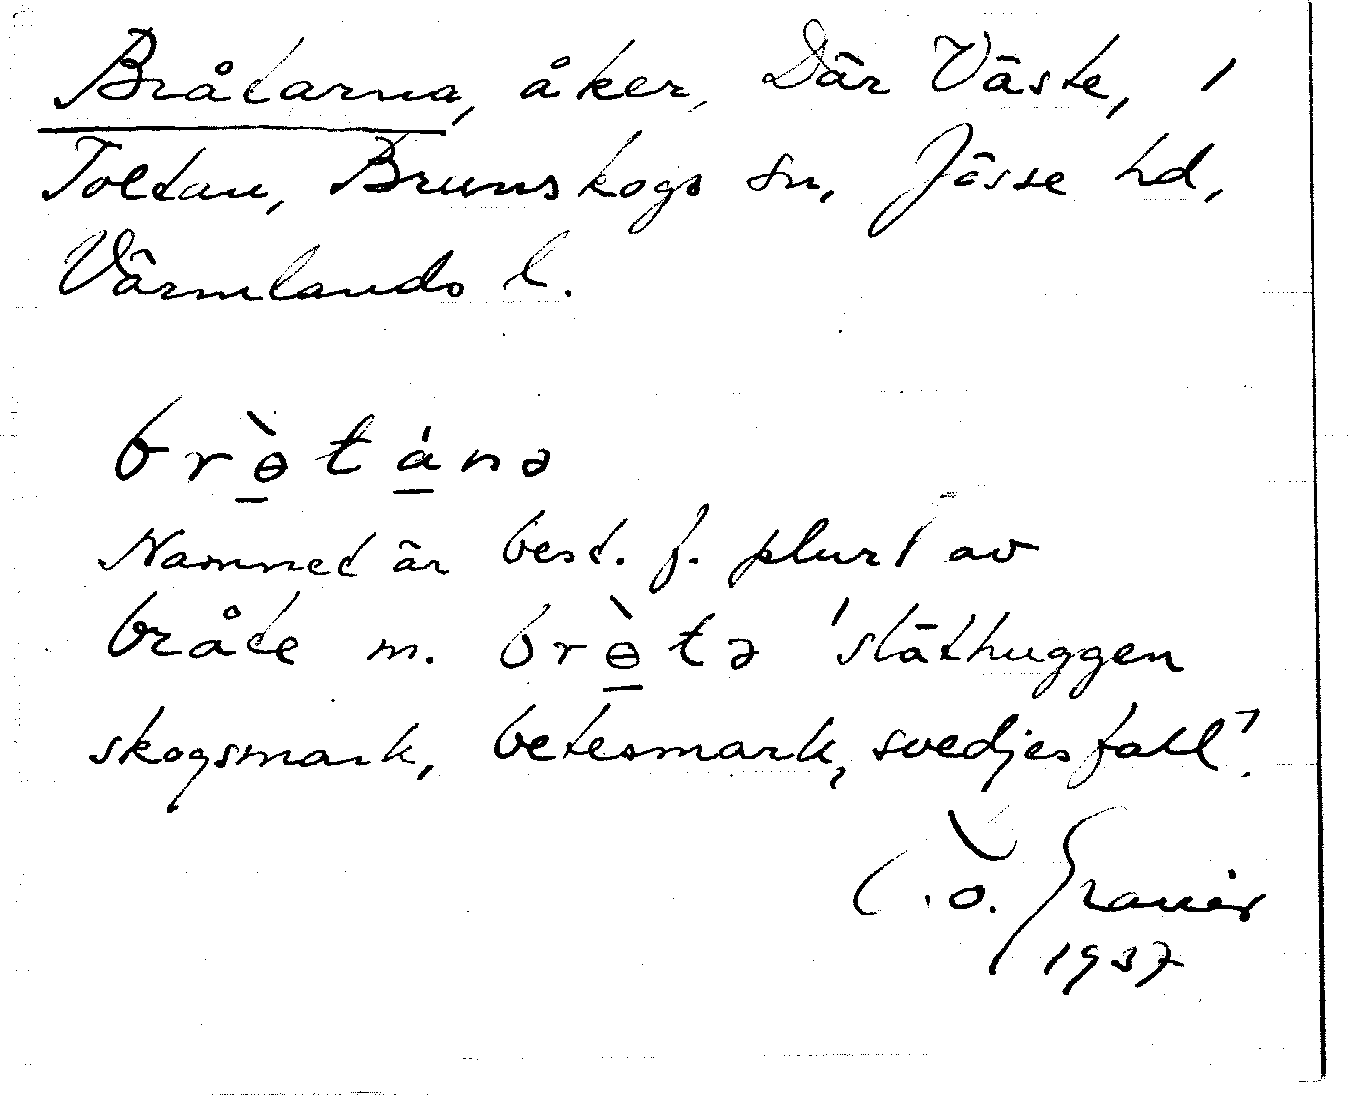 Bråtarna, åker, Där Väste, 1
Toltan, Brunskogs sn, Jösse hd,
Värmlands l.
brɵ̱̀tá̱nə
Namnet är best. f. plur. av
bråte m. brɵ̱̀tə 'slåthuggen
skogsmark, betesmark, svedjefall'.
1937